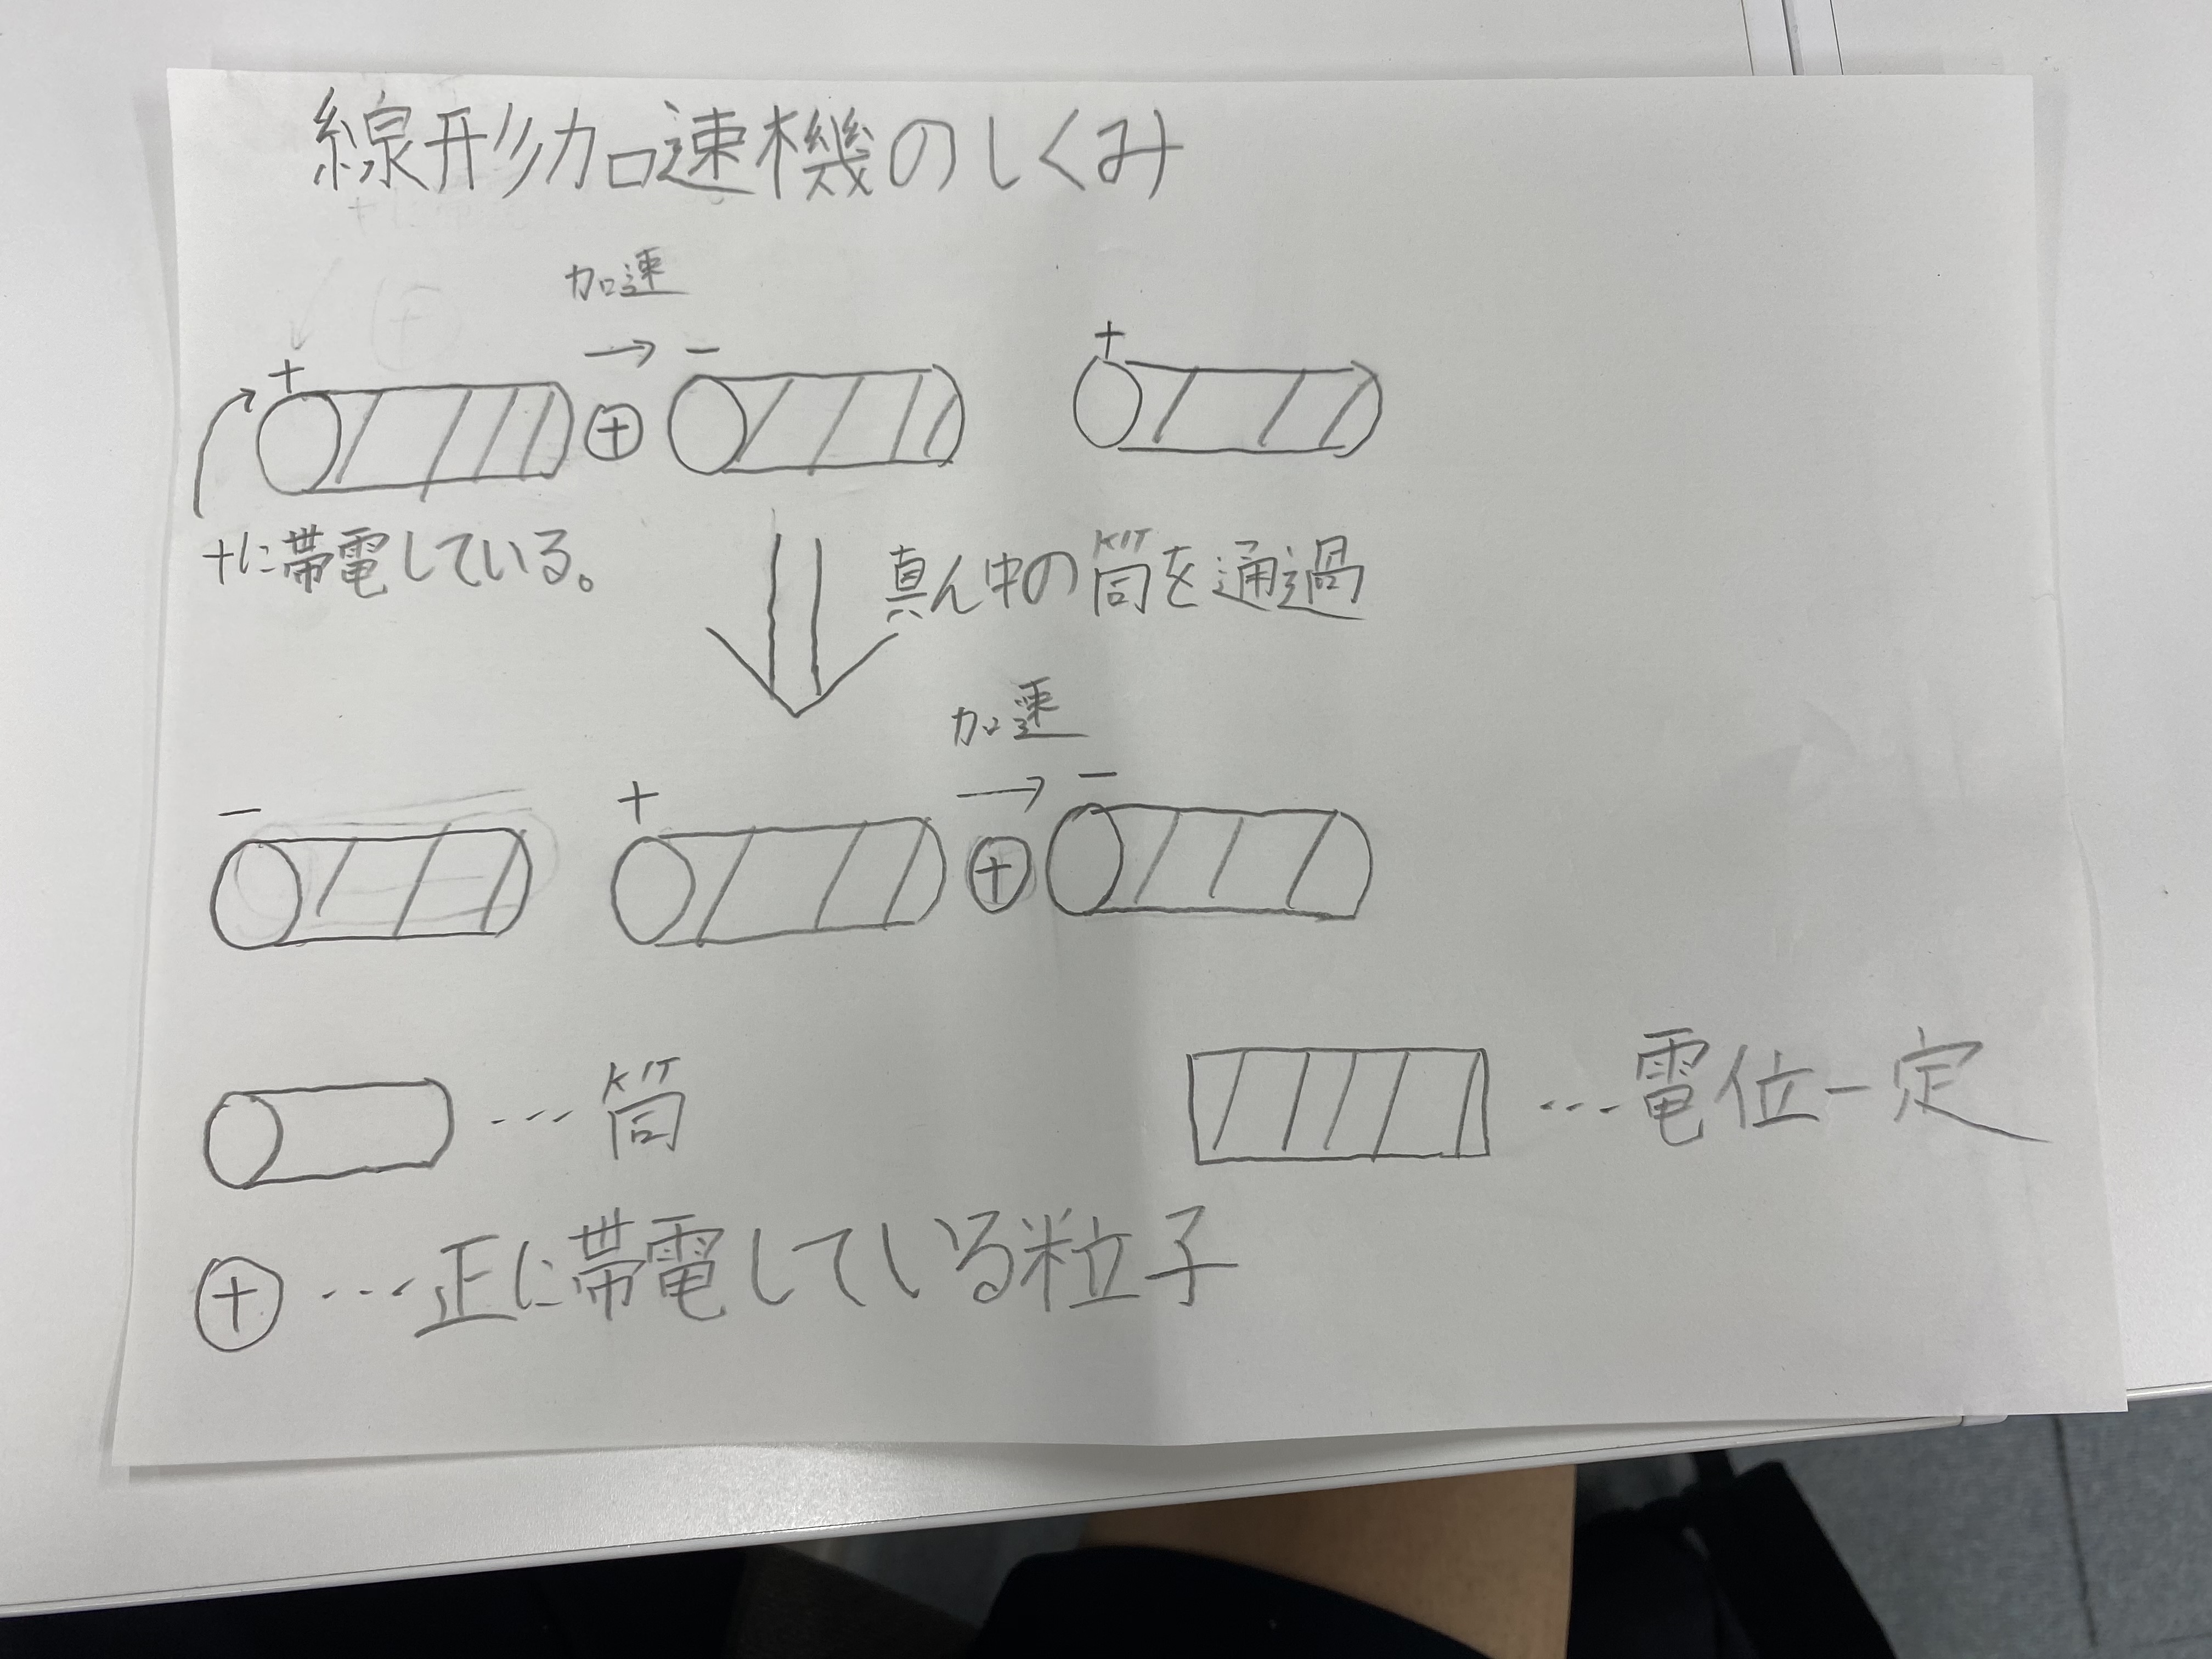 線形加速機のしくみ
加速
+ → − +
⊕
+に帯電している。
真ん中の筒を通過
加速
− + → −
⊕
… 筒
… 電位一定
⊕ … 正に帯電している粒子